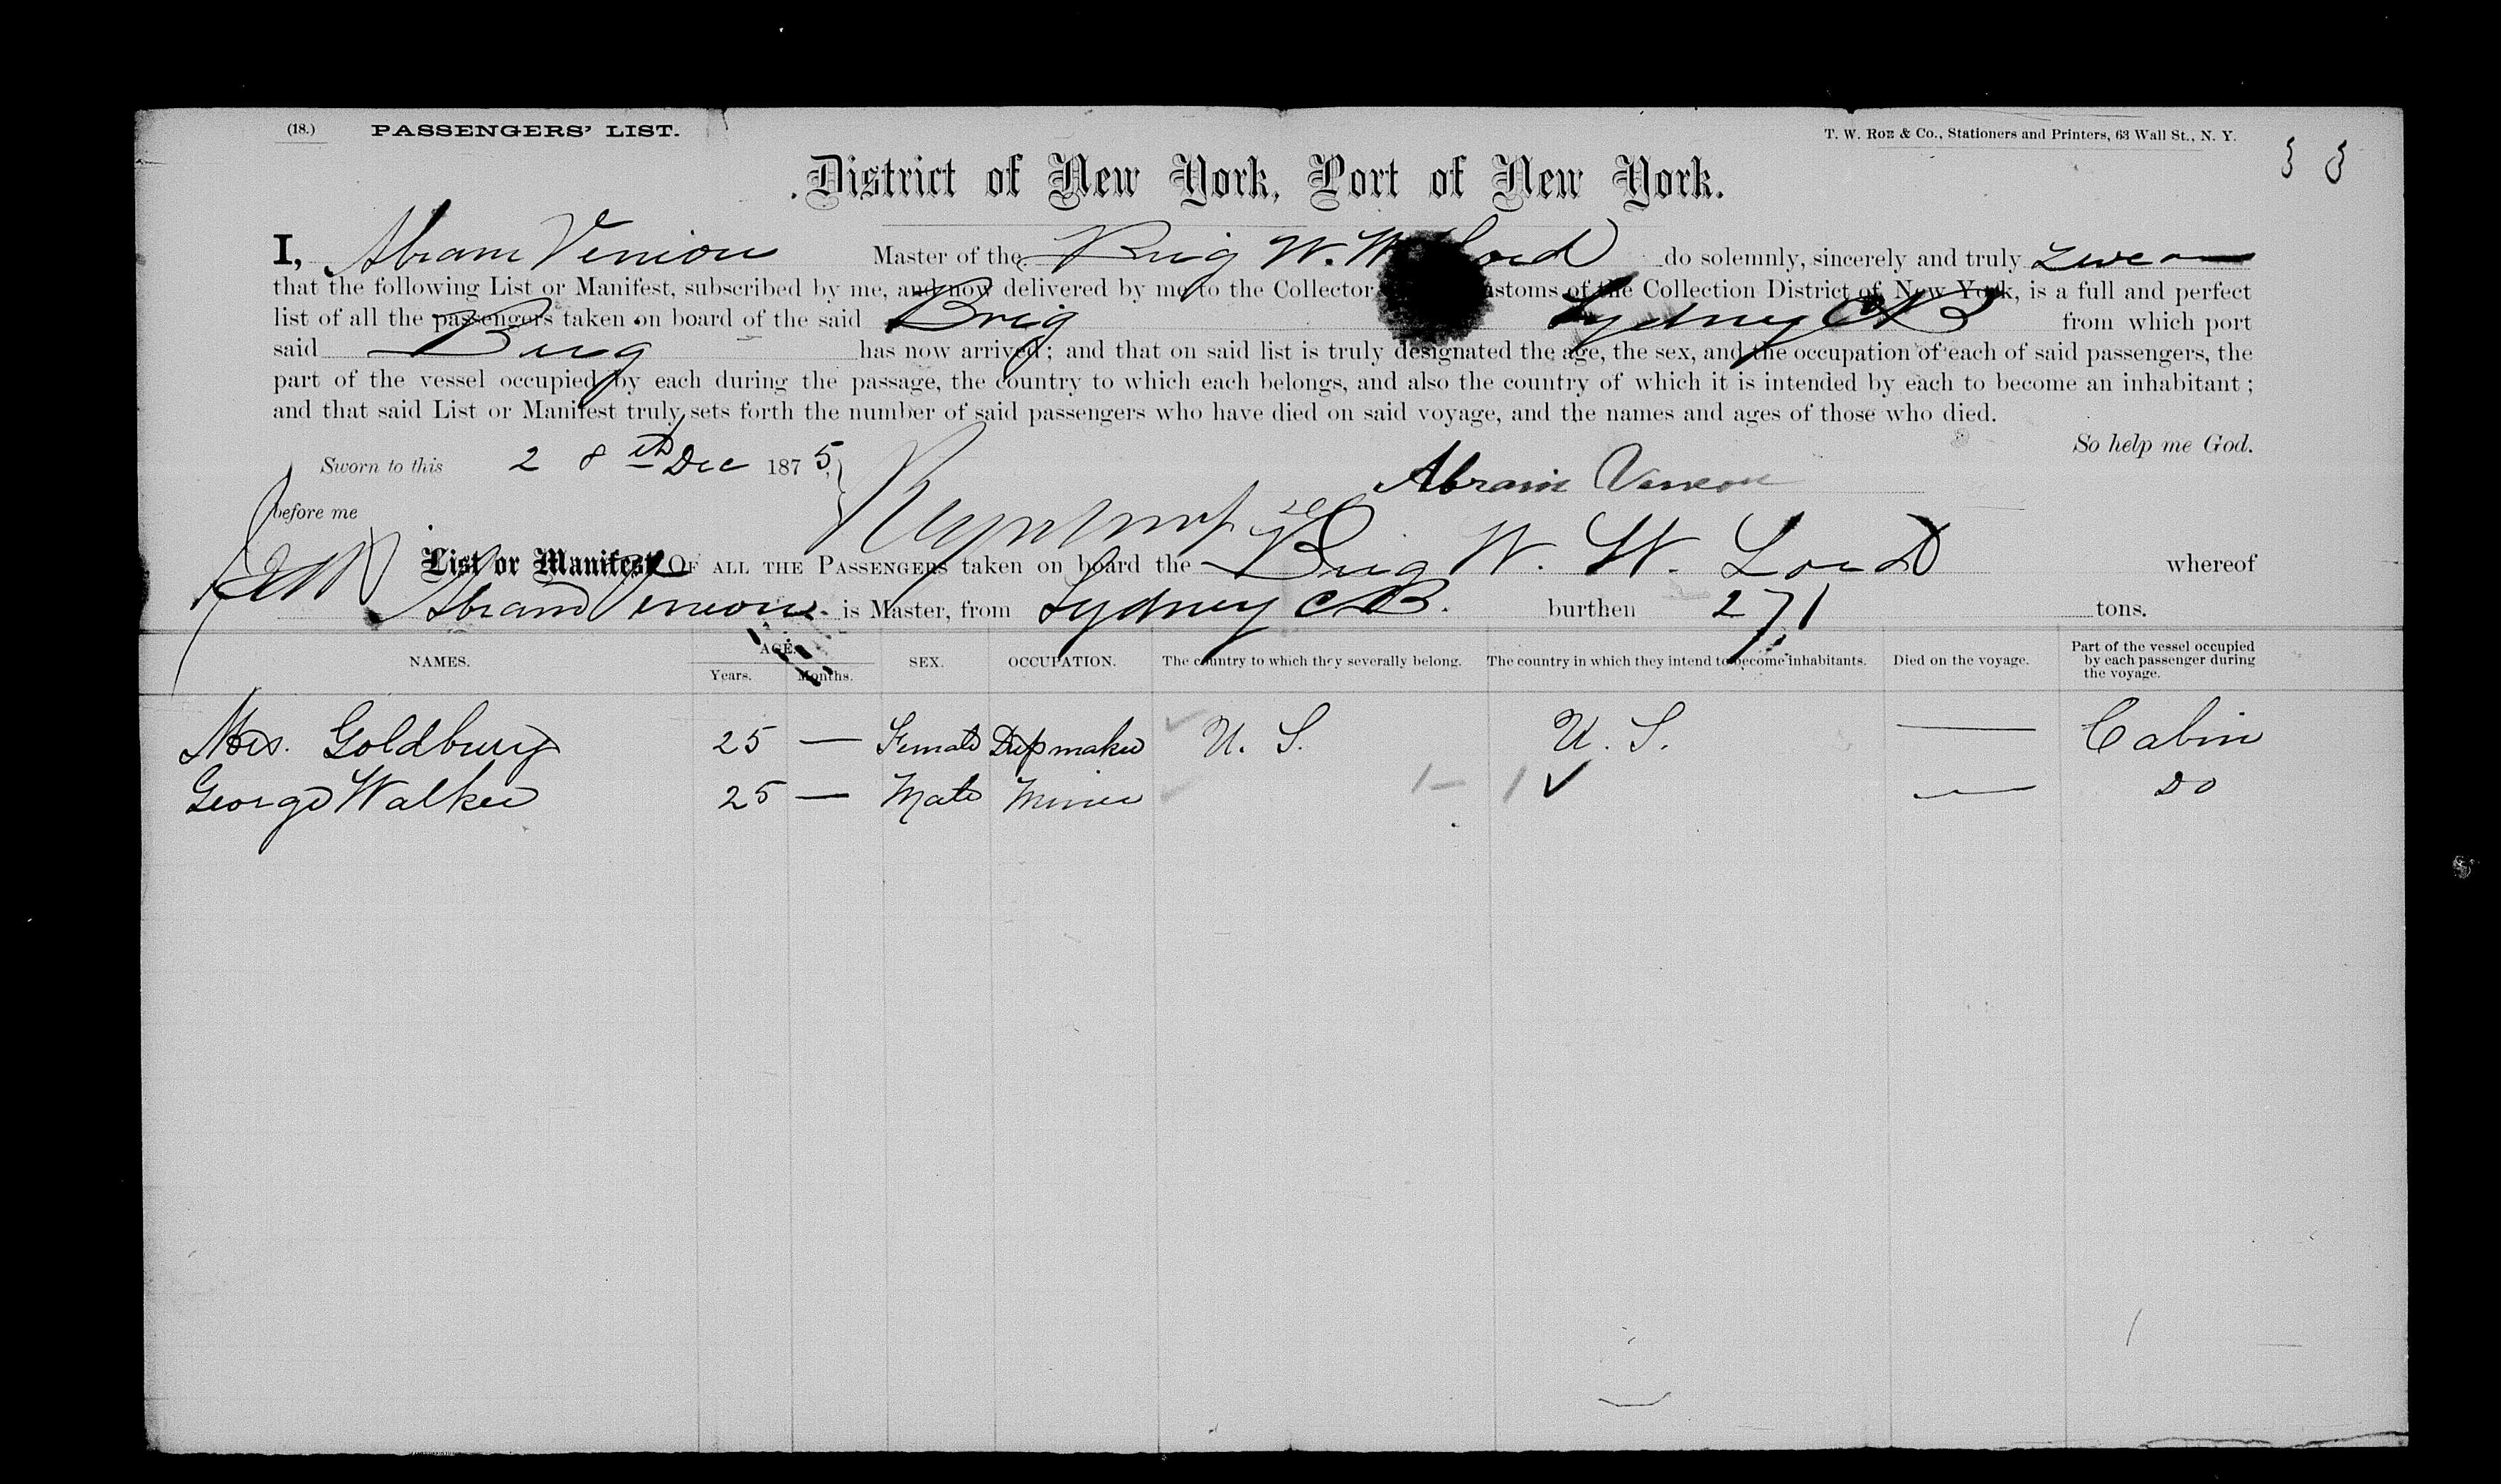 (18.) PASSENGERS' LIST.
T. W. Roe & Co., Stationers and Printers, 63 Wall St., N. Y.
District of New York, Port of New York.
I, Abram Master of the Brig W. W. Lord do solemnly, sincerely and truly swear
that the following List or Manifest, subscribed by me, and now delivered by me to the Collector stoms of the Collection District of New York, is a full and perfect
list of all the passengers taken on board of the said Brig Sydney CB from which port
said Brig has now arrived; and that on said list is truly designated the age, the sex, and the occupation of each of said passengers, the
part of the vessel occupied by each during the passage, the country to which each belongs, and also the country of which it is intended by each to become an inhabitant;
and that said List or Manifest truly sets forth the number of said passengers who have died on said voyage, and the names and ages of those who died.
So help me God.
Sworn to this 28th Dec 1875,
Abram
before me
List or Manifest OF ALL THE PASSENGERS taken on board the Brig W. W. Lord whereof
Abram is Master, from Sydney CB. burthen 271 tons.
NAMES. AGE. Years. Months. SEX. OCCUPATION. The country to which they severally belong. The country in which they intend to become inhabitants. Died on the voyage. Part of the vessel occupied by each passenger during the voyage.
Mrs. Goldburg 25 — Female U. S. U. S. — Cabin
George Walker 25 — Male Miner — Do